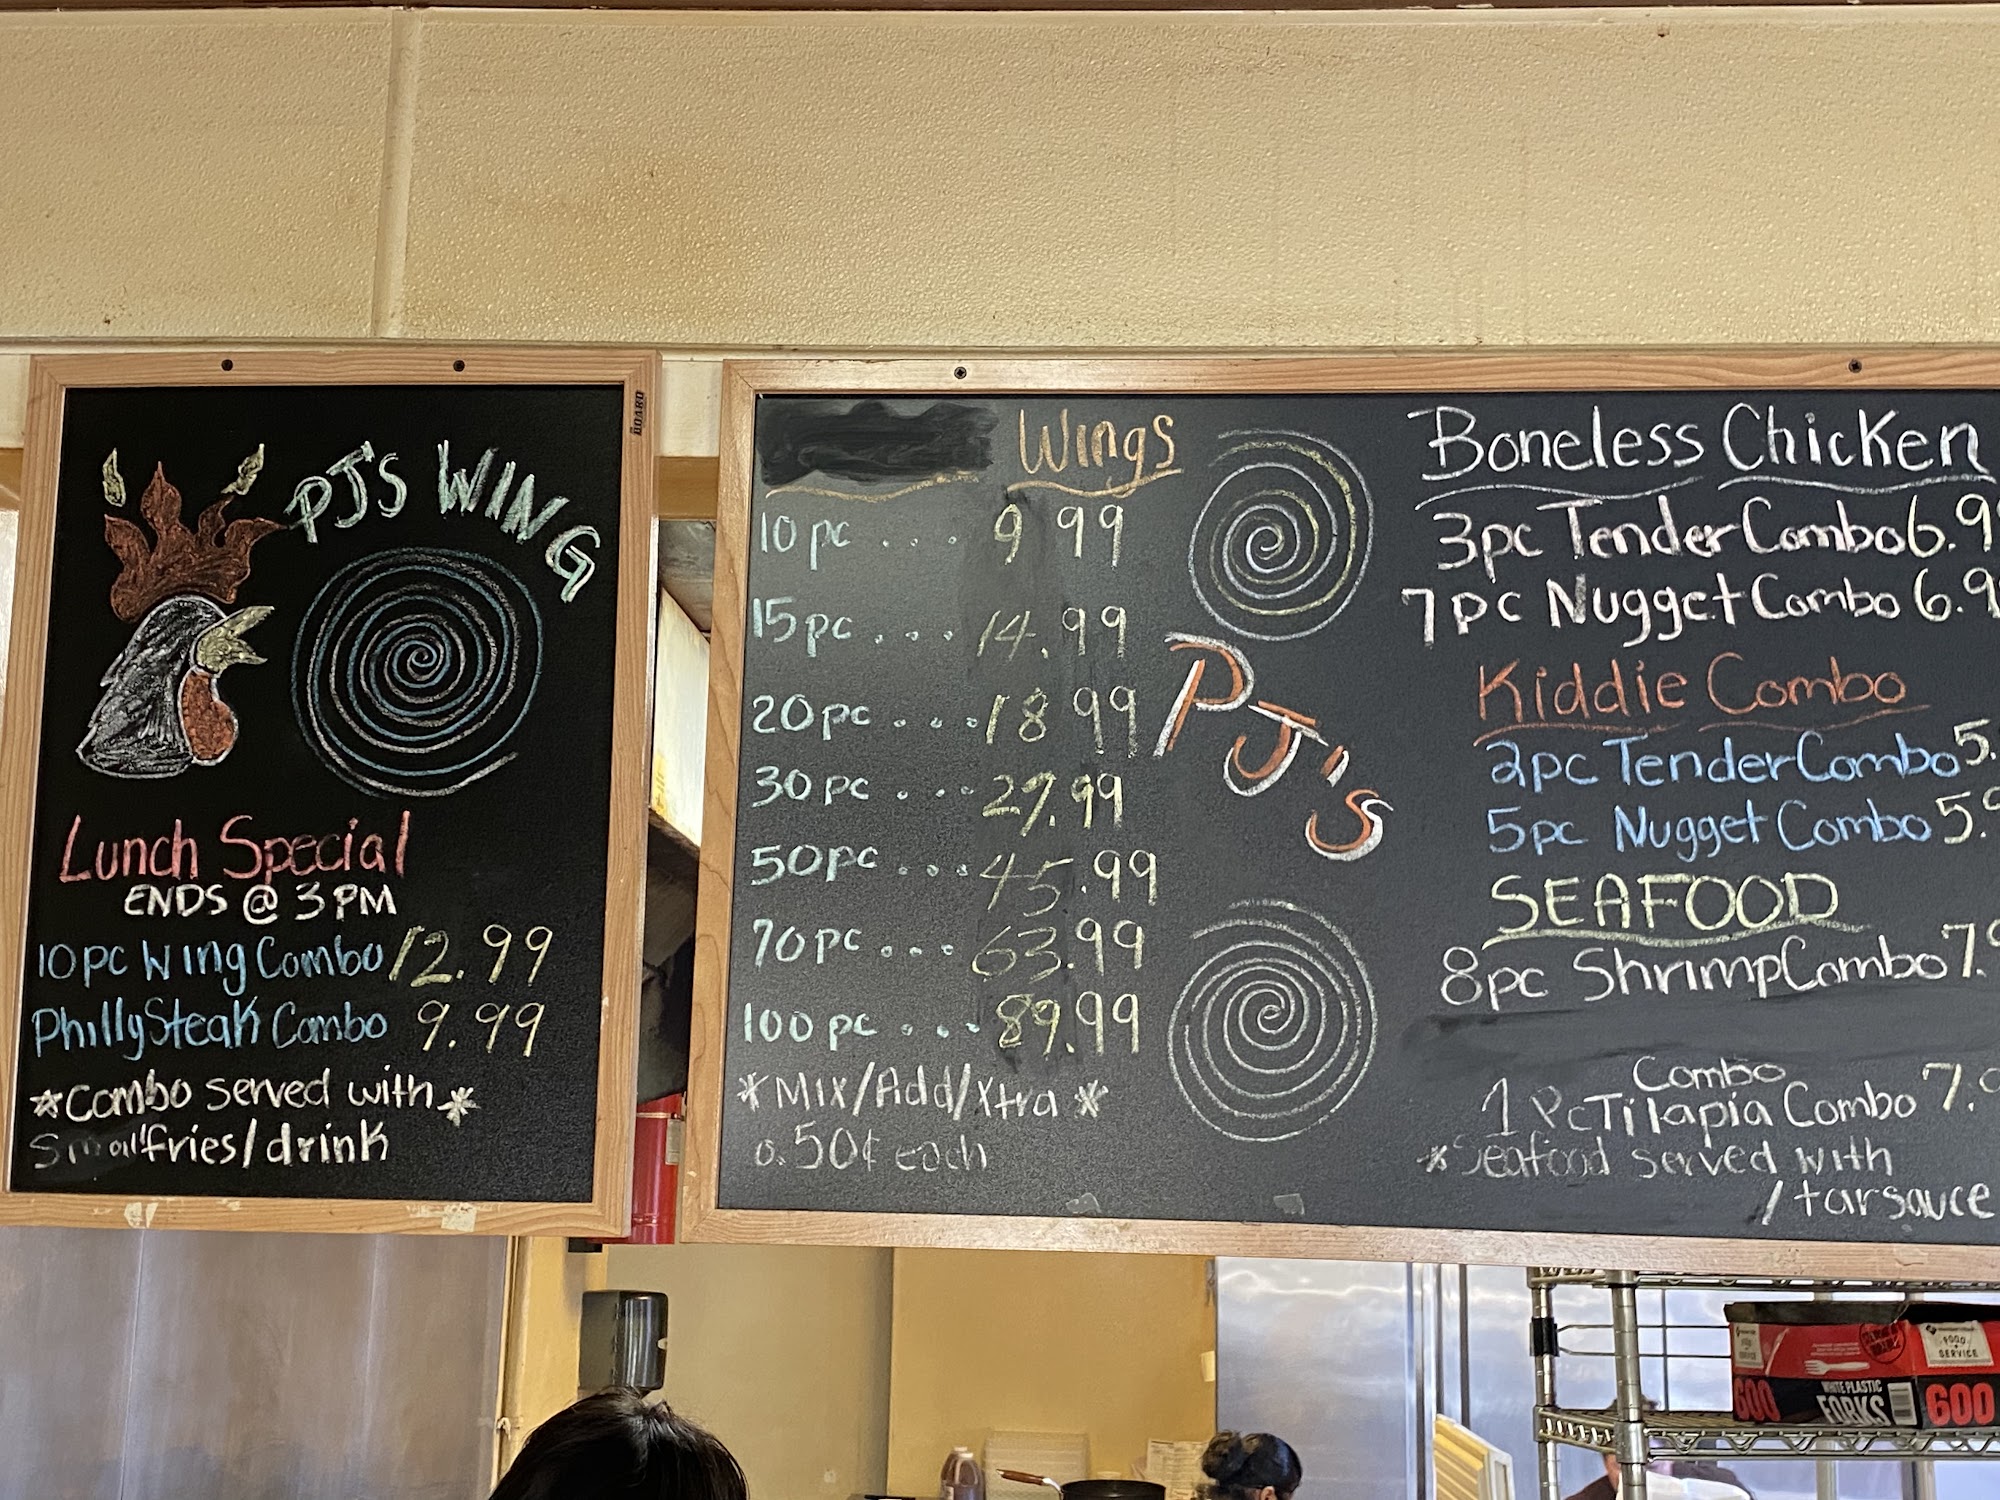 THE BOARD
PJ'S WING
Lunch Special
ENDS @ 3 PM
10 PC Wing Combo 12.99
Philly Steak Combo 9.99
*Combo served with*
Small fries/drink
Wings
10 pc . . . 9 99
15 pc . . . 14.99
20 pc . . . 18 99
30 pc . . . 27.99
50 pc . . . 45.99
70 pc . . . 63.99
100 pc . . . 89.99
*Mix/Add/Xtra*
0.50¢ each
PJ's
Boneless Chicken
3pc Tender Combo 6.9
7 PC Nugget Combo 6.9
Kiddie Combo
2pc Tender Combo 5.
5pc Nugget Combo 5.
SEAFOOD
8pc Shrimp Combo 7.
Combo
1 Pc Tilapia Combo 7.
*Seafood served with
/tarsauce
FOOD
SERVICE
600
WHITE PLASTIC
FORKS
600